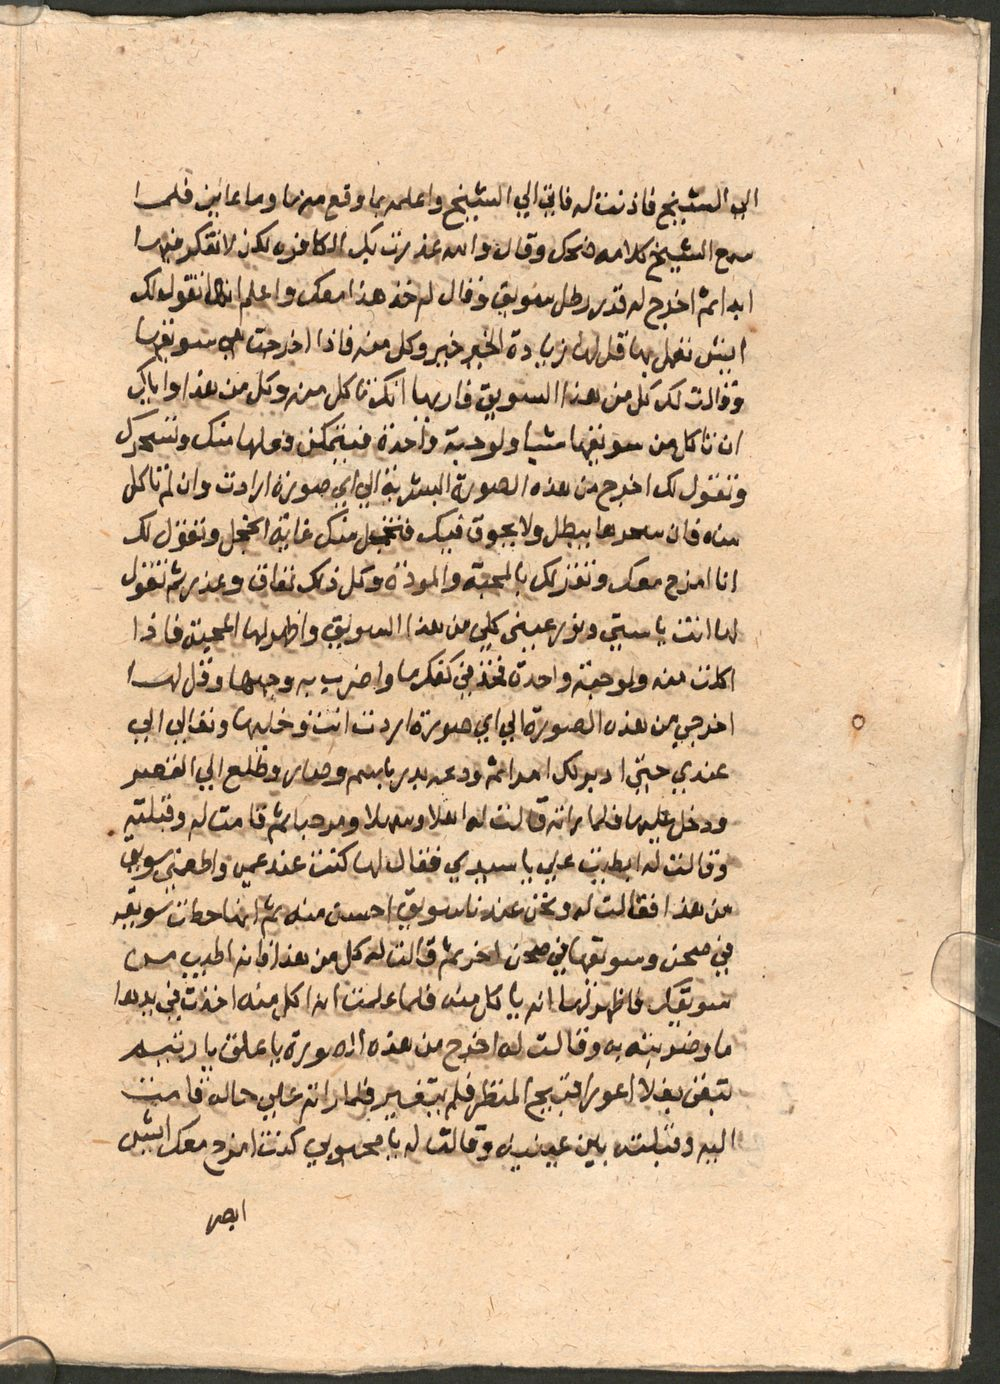 الي الشيخ فاذنت له فاتي الي الشيخ واعلمه بما وقع منها وما عاين فلما
سمع الشيخ كلامه ضحك وقال والله غدرت بك الكافره لكن لا تفكر فيها
ابدا ثم اخرج له قدر رطل سويق وقال له خذ هذا معك واعلم انها تقول لك
ايش تعمل بها قل لها زيادة الخير خير وكل منه فاذا اخرجت هي سويقها
وقالت لك كل من هذا السويق فاريها انك تاكل منه وكل من هذا واياك
ان تاكل من سويقها شيا ولو حبة واحدة فيتمكن فعلها منك وتسحرك
وتقول لك اخرج من هذه الصورة البشرية الي اي صورة ارادت وان لم تاكل
منه فان سحرها يبطل ولا يجوق فيك فتخجل منك غاية الخجل وتقول لك
انا امزح معك وتقر لك بالمحبة والمودة وكل ذلك نفاق وغدر ثم تقول
لها انت يا ستي ونور عيني كلي من هذا السويق واظهر لها المحبة فاذا
اكلت منه ولو حبة واحدة فخذ في كفك ما واضرب به وجهها وقل لها
اخرجي من هذه الصورة الي اي صورة اردت انت وخليها وتعالي الي
عندي حتي ادبر لك امرا ثم ودعه بدر باسم وصار وطلع الي القصر
ودخل عليها فلما راته قالت له اهلا وسهلا ومرحبا ثم قامت له وقبلته
وقالت له ابطيت علي يا سيدي فقال لها كنت عند عمي واطعمني سويق
من هذا فقالت له ونحن عندنا سويق احسن منه ثم انها حطت سويقه
في صحن وسويقها في صحن اخر ثم قالت له كل من هذا فانه اطيب من
سويقك فاظهر لها انه ياكل منه فلما علمت انه اكل منه اخذت في يدها
ما وضربته به وقالت له اخرج من هذه الصورة يا علق يا
تبقي بغلا اعور قبيح المنظر فلم يتغير فلما راته علي حاله قامت
اليه وقبلته بين عينيه وقالت له يا محبوبي كنت امزح معك ايش
ابصر